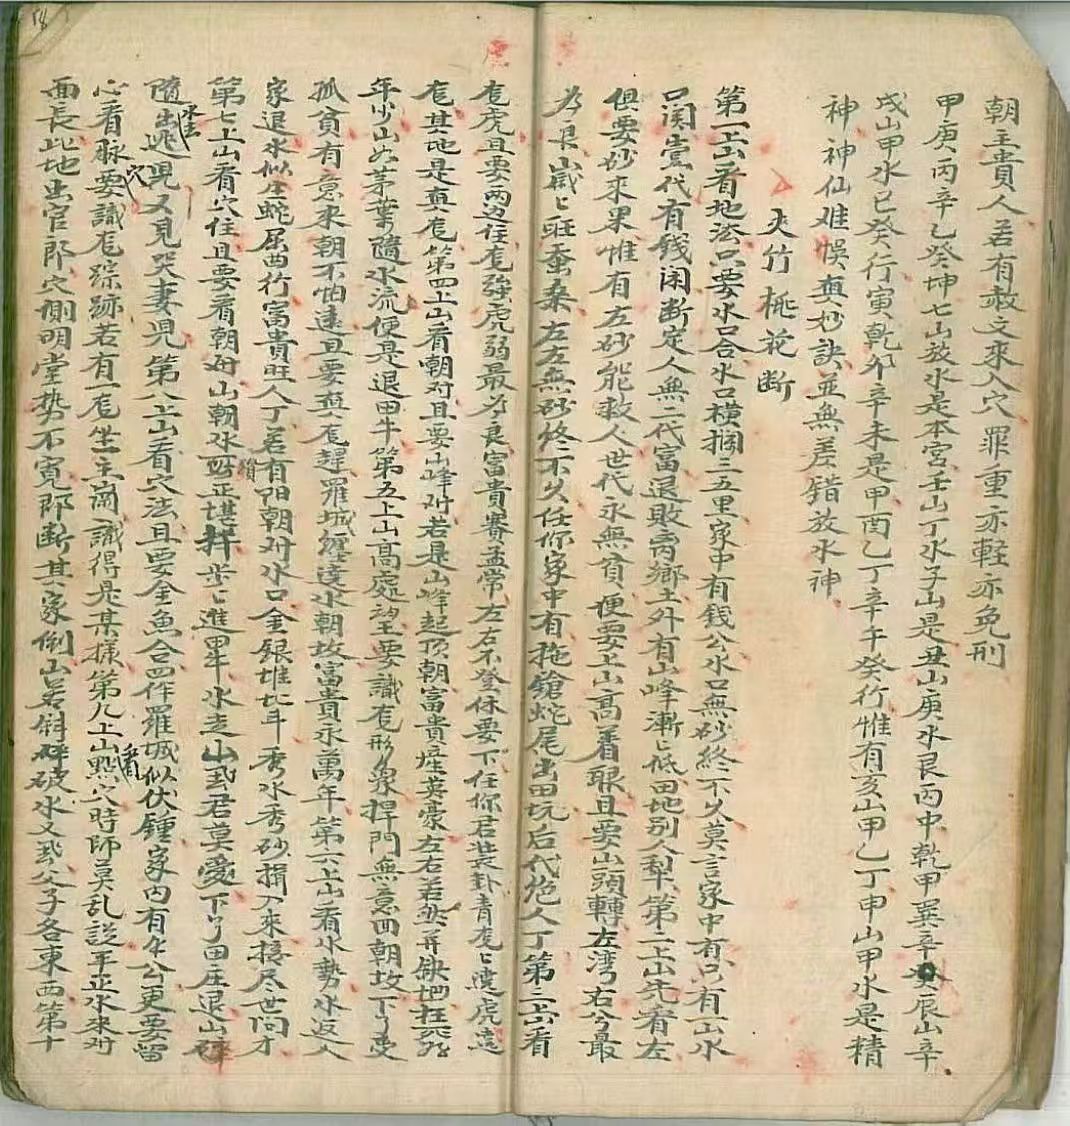 朝主貴人若有赦文來入穴罪重亦軽亦免刑
甲庚丙辛乙癸坤七山放水是本宫壬山丁水子山是丑山庚水艮丙中乾甲巽辛辰山辛
戌山甲水已癸行寅乾卯辛未是甲酉乙丁辛午癸行惟有亥山甲乙丁申山甲水是精
神神仙难悞真妙訣並無差錯放水神
夾竹桃花断
第一上山看地法只要水口合水口横攔三五里家中有錢公水口無砂終不久莫言家中有只有山水
口関當代有錢閑断定人無二代富退敗离鄉土外有山峰漸〻低田地别人犁第二上山先看左
俱要妙來果惟有左砂能救人世代永無貧便要上山高着眼且要山頭轉左湾右兮最
為良歲〻旺蚕桑左右無砂终不久任你家中有拖鎗蛇尾出田坑后代绝人丁第三上山看
龙虎且要两边住龙強虎弱最為良富貴賽孟常左右不登休要下任你君裝卦青龙〻遠虎遠
龙其地是真龙第四上山看朝对且要山峰对若是山峰起顶朝富貴產英豪左右若然并缺地枉死
年少山如茅葉隨水流便是退甲牛第五上山高處望要識龙形象捍門無意四朝坟丁受
孤貧有意來朝不怕遠且要真龙趕羅城經遠水朝坟富貴永萬年第六上山看水勢水返人
家退水似生蛇屈曲行富貴旺人丁若有阳朝对水口金銀堆北斗秀水秀砂揖入來接尽世间才
第七上山看穴住且要看朝对山朝水對正堪拝步〻進田牛水走山飛君莫愛下了田庄退山
隨出逃児又見哭妻児第八上山看穴法且要金魚合四作羅城似伏鍾家内有牛公更要留
心看脉要識龙踪跡若有一龙坐主高識得是某樣第九上山點穴時師莫乱説平正水來对
面長此地出官郎穴側明堂势不寬郡断其家倒山若斜碎破水又飛父子各東西第十
18